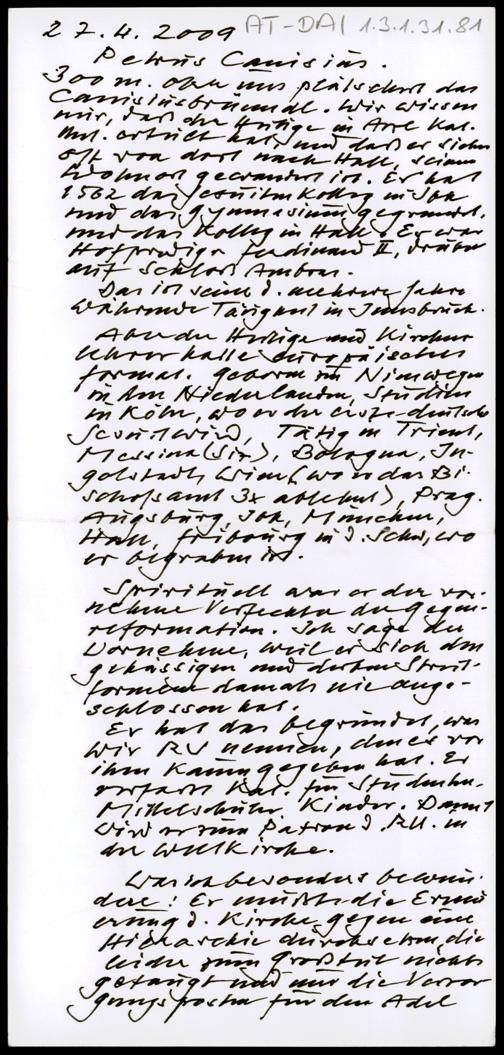 27.4.2009 AT-DAI 1.3.1.31.81
Petrus Canisius.
300 m. ober uns plätschert das
Canisiusbründl. Wir wissen
nur, daß der Heilige in Arzl Kat.
Unt. erteilt hat, und daß er sicher
oft von dort nach Hall, seinem
Wohnort gewandert ist. Er hat
1562 das Jesuitenkolleg in Ibk
und das Gymnasium gegründet,
und das Kolleg in Hall. Er war
Hofprediger Ferdinand II, drüben
auf Schloß Ambras.
Das ist seine d. mehrere Jahre
währende Tätigkeit in Innsbruck.
Aber der Heilige und Kirchen
lehrer hatte europäisches
Format. Geboren in Nimwegen
in den Niederlanden, Studien
in Köln, wo er der erste deutsche
Jesuit wird, Tätig in Trient,
Messina (Siz), Bologna, In-
golstadt, Wien (wo er das Bi-
schofsamt 3x ablehnt), Prag.
Augsburg, Ibk, München,
Hall, Fribourg in d. Schw, wo
er begraben ist.
Spirituell war er der vor-
nehme Verfechter der Gegen-
reformation. Ich sage der
Vornehme, weil er sich den
gehässigen und derben Streit-
formen damals nie ange-
schlossen hat.
Er hat das begründet, was
wir RU nennen, den es vor
ihm kaum gegeben hat. Er
verfasst Kat. für Studenten,
Mittelschüler, Kinder. Damit
wird er zum Patron d. RU. in
der Weltkirche.
Was ich besonders bewun-
dere: Er mußte die Erneu
erung d. Kirche gegen eine
Hierarchie durchsetzen, die
leider zum Großteil nichts
getaugt und nur die Versor
gungsposten für den Adel